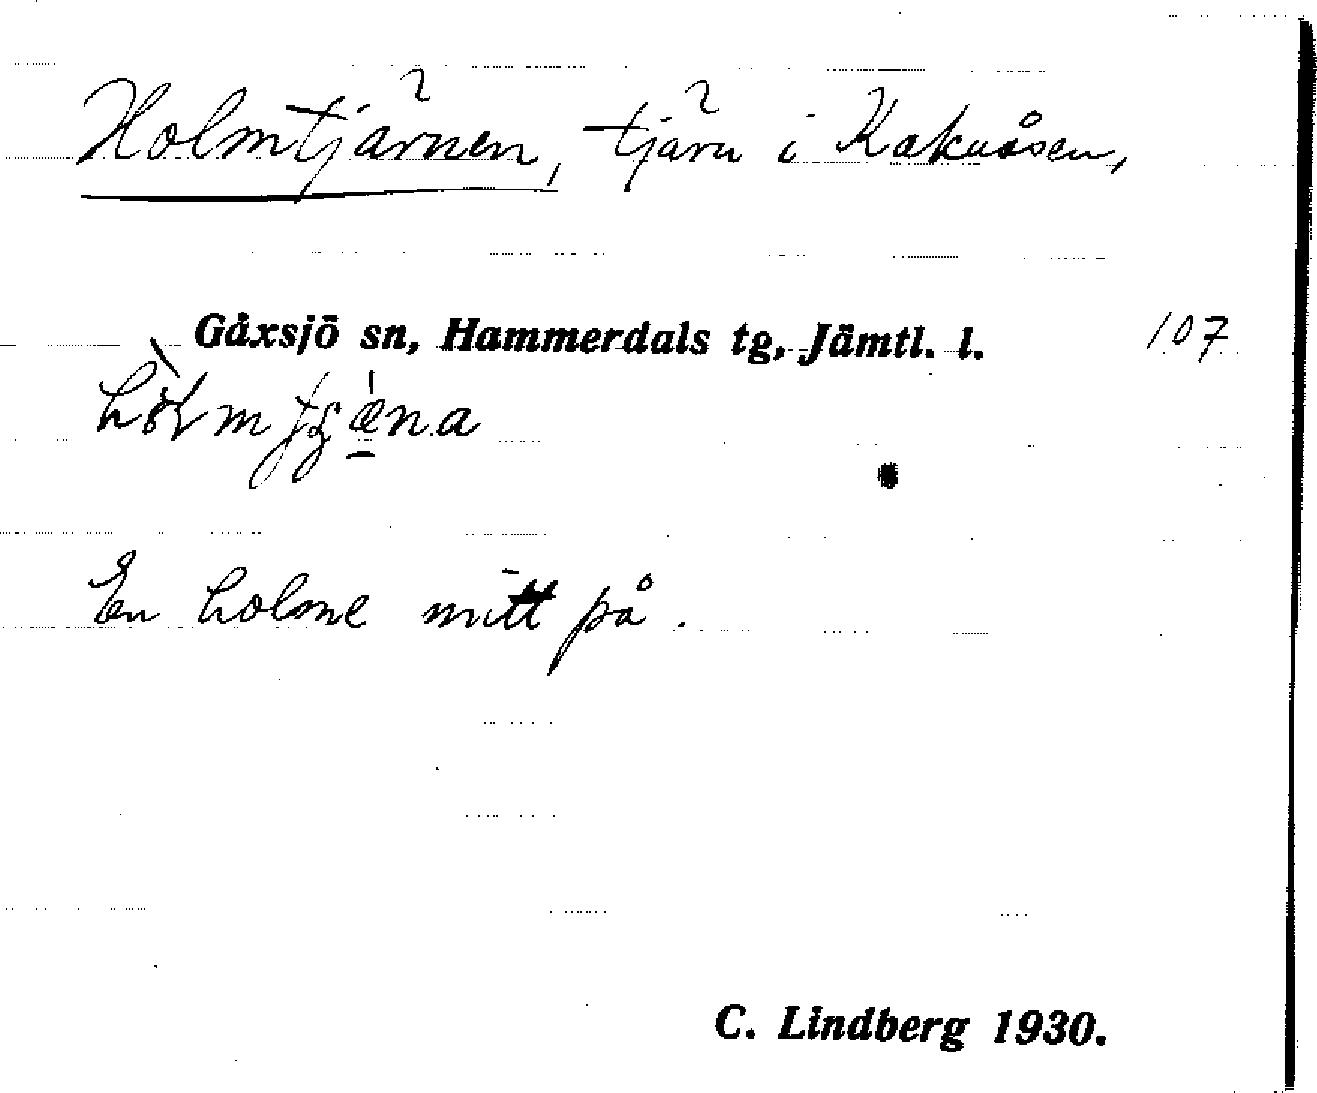 Holmtjärnen, tjärn i Kakuåsen,
Gåxsjö sn, Hammerdals tg, Jämtl. l. 107
En holme mitt på.
C. Lindberg 1930.